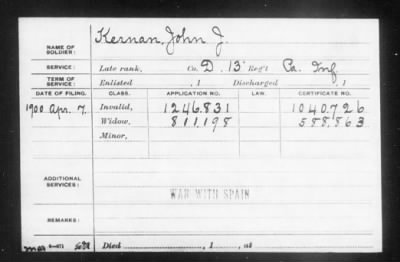 NAME OF SOLDIER: Kernan, John J.
SERVICE: Late rank, Co. D, 13" Reg't Pa. Inf.
TERM OF SERVICE: Enlisted , 1 Discharged , 1
DATE OF FILING. CLASS. APPLICATION NO. LAW. CERTIFICATE NO.
1900 Apr. 7. Invalid, 1246.831 1040.726
Widow, 811,198 588,863
Minor,
ADDITIONAL SERVICES:
WAR WITH SPAIN
REMARKS:
Died , 1 , at